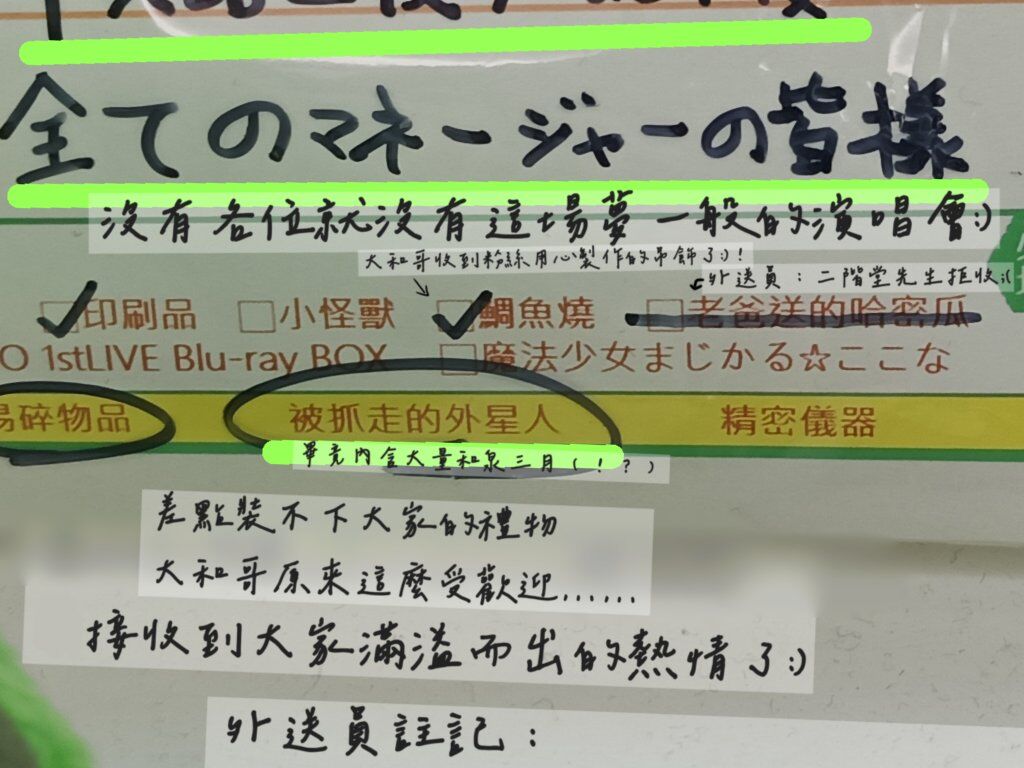 全てのマネージャーの皆様
沒有各位就沒有這場夢一般的演唱會:)
大和哥收到粉絲用心製作的吊飾了:)!
外送員：二階堂先生拒收:(
✓印刷品 □小怪獸 ✓鯛魚燒 □老爸送的哈密瓜
O 1stLIVE Blu-ray BOX □魔法少女まじかる☆ここな
易碎物品 被抓走的外星人 精密儀器
畢竟內含大量和泉三月(!?)
差點裝不下大家的禮物
大和哥原來這麼受歡迎......
接收到大家滿溢而出的熱情了:)
外送員註記：